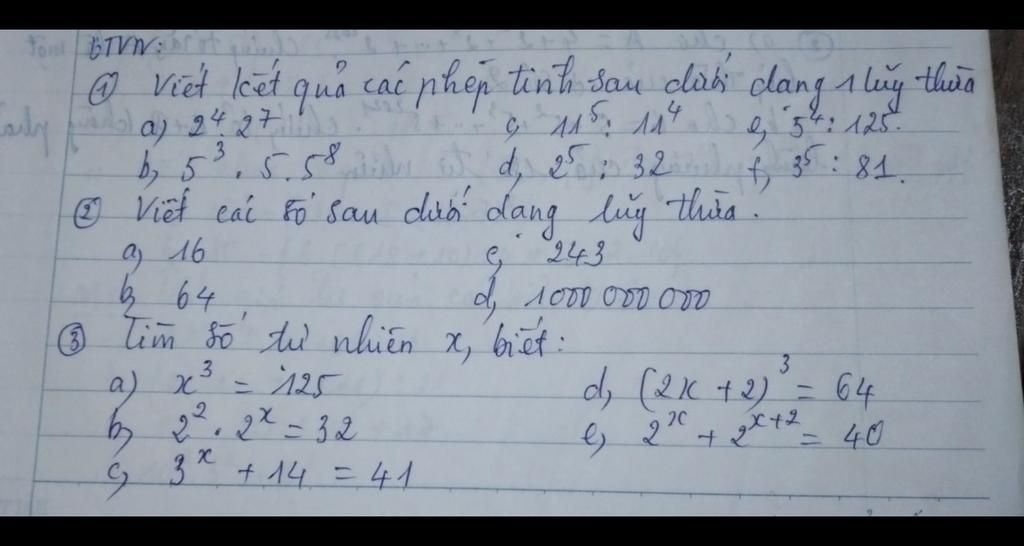 BTVN:
① Viết kết quả các phép tính sau dưới dạng 1 lũy thừa
a) 2⁴. 2⁷ c, 11⁵ : 11⁴ e, 5⁴ : 125.
b, 5³ . 5 . 5⁸ d, 2⁵ : 32 f, 3⁵ : 81.
② Viết các số sau dưới dạng lũy thừa.
a, 16 c, 243
b, 64 d, 1000 000 000
③ Tìm số tự nhiên x, biết:
a) x³ = 125 d, (2x + 2)³ = 64
b, 2² . 2ˣ = 32 e, 2ˣ + 2ˣ⁺² = 40
c, 3ˣ + 14 = 41